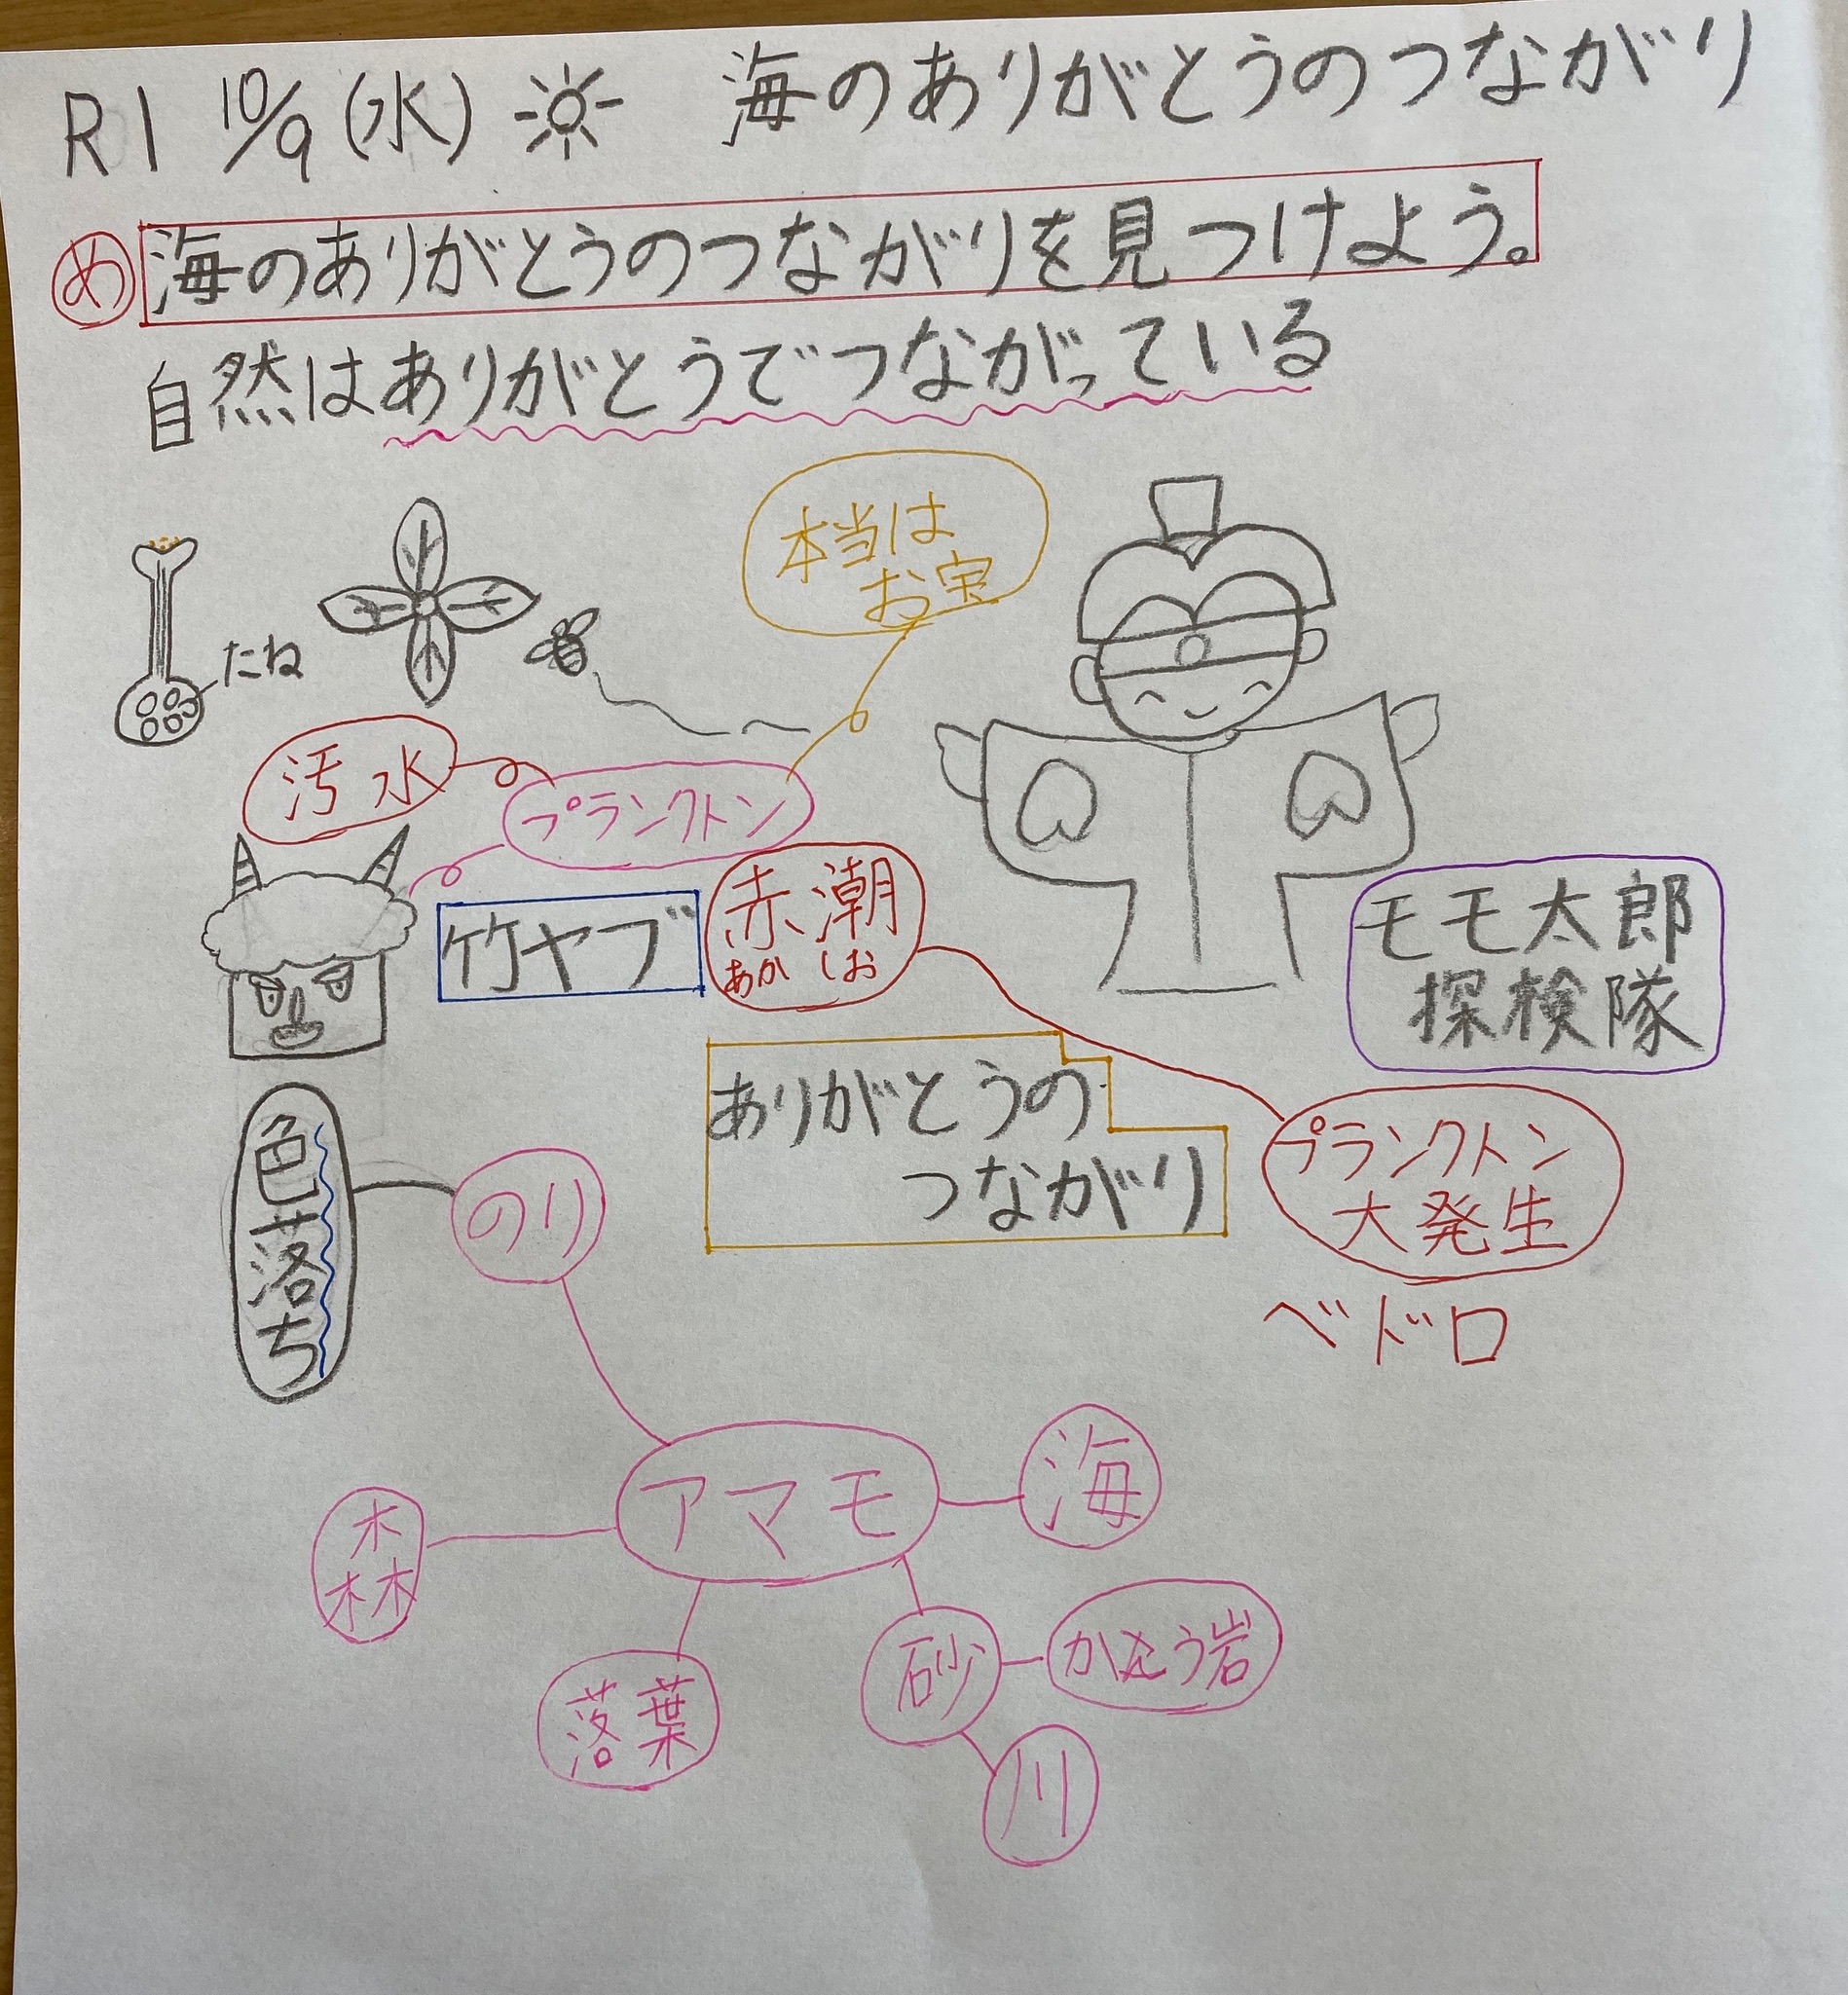 R1 10/9(水) 海のありがとうのつながり
め 海のありがとうのつながりを見つけよう。
自然はありがとうでつながっている
本当は
お宝
たね
汚水
プランクトン
竹ヤブ
赤潮
あかしお
モモ太郎
探検隊
ありがとうの
つながり
プランクトン
大発生
ヘドロ
色落ち
のり
アマモ
海
森
落葉
砂
かこう岩
川